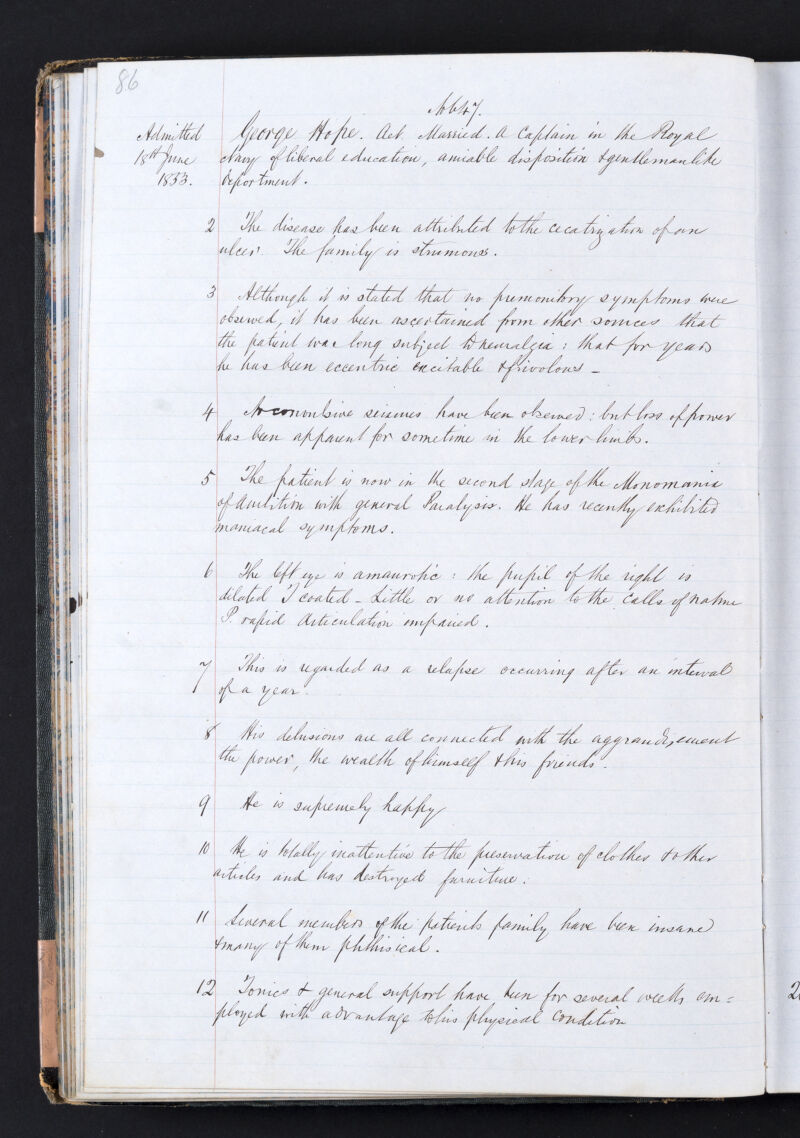 86
No 647.
Admitted
18th June
1853.
George Hope. Aet. Married. A Captain in the Royal
Navy of liberal education, amiable disposition & gentlemanlike
deportment.
2 The disease has been attributed to the cicatrization of an
ulcer. The family is strumous.
3 Although it is stated that no premonitory symptoms were
observed, it has been ascertained from other sources that
the patient was long subject to neuralgia: that for years
he has been eccentric excitable & frivolous –
4 No convulsive seizures have been observed: but loss of power
has been apparent for sometime in the lower limbs.
5 The patient is now in the second stage of the Monomania
of Ambition with general Paralysis. He has recently exhibited
maniacal symptoms.
6 The left eye is amaurotic: the pupil of the right is
dilated T coated – Little or no attention to the calls of nature
P. rapid Articulation impaired.
7 This is regarded as a relapse occurring after an interval
of a year.
8 His delusions are all connected with the aggrandisement
the power, the wealth of himself & his friends.
9 He is supremely happy
10 He is totally inattentive to the preservation of clothes & other
articles and has destroyed furniture.
11 Several members of the patients family have been insane
& many of them phthisical.
12 Tonics & general support have been for several weeks em=
ployed with advantage to his physical condition